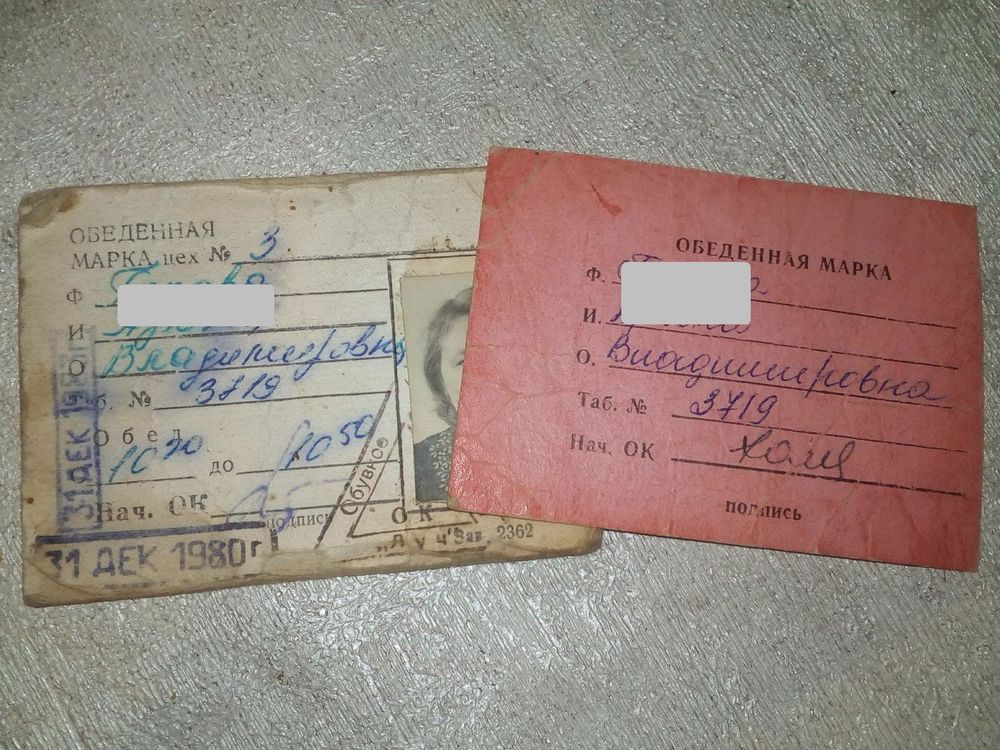 ОБЕДЕННАЯ
МАРКА, цех № 3
Ф
И
О Владимировна
б. № 3719
Обед
10 20 до 10 50
Нач. ОК
подпись
31 ДЕК 1980г
31 ДЕК
Обувное
ОК
"Луч"
Зав. 2362
ОБЕДЕННАЯ МАРКА
Ф.
И.
О. Владимировна
Таб. № 3719
Нач. ОК
подпись